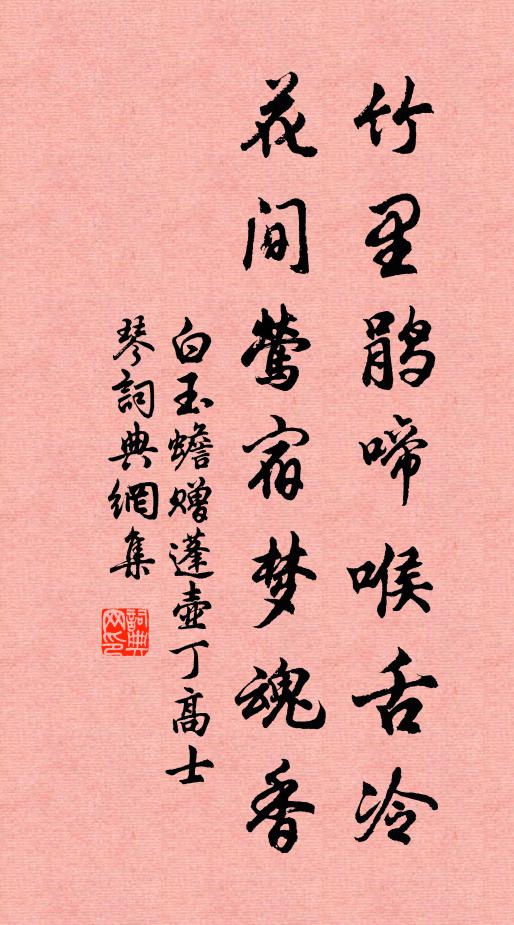 竹里鹃啼喉舌冷
花间莺宿梦魂香
白玉蟾赠蓬壶丁高士
琴詞典網集
詞典网印